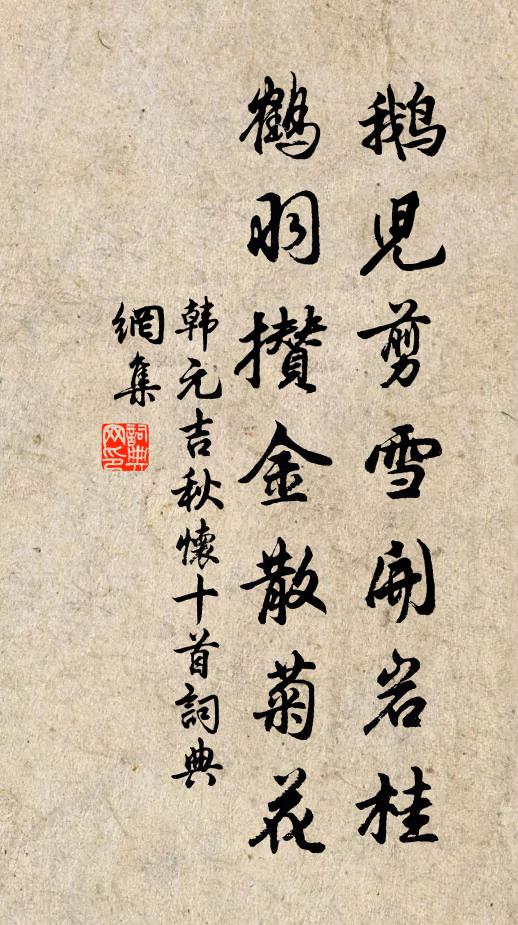 鵝兒剪雪開岩桂
鶴羽攅金散菊花
韩元吉秋懷十首詞典
網集
詞典
网印